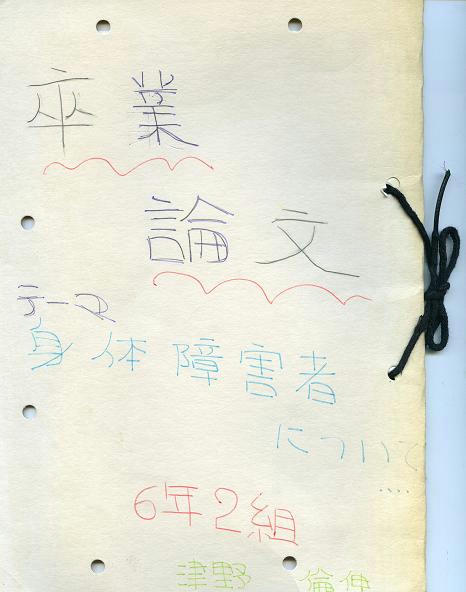 卒業
論文
テーマ
身体障害者
について
....
6年2組
津野 倫伸